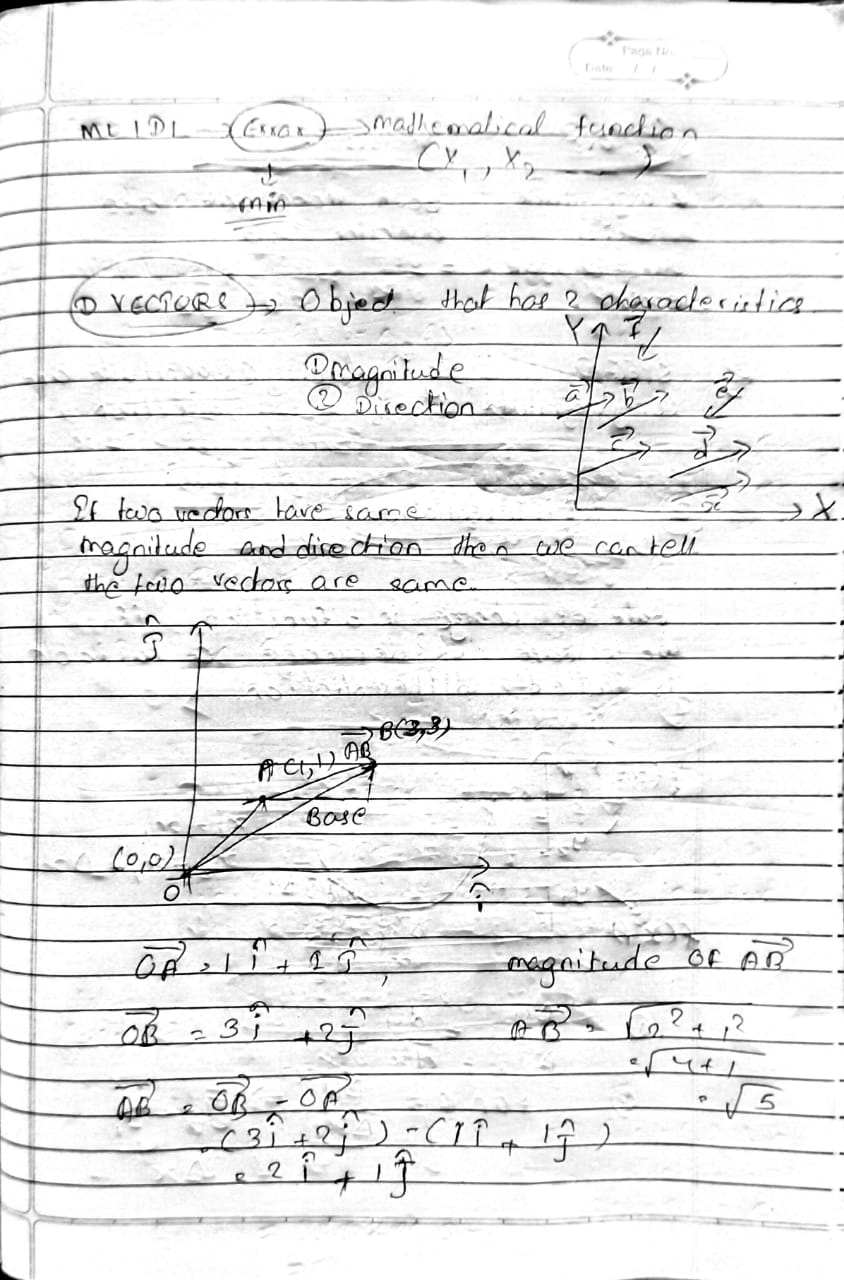 Page No.
Date / /
ML | DL → Error → mathematical function
(X₁, X₂ )
↓
min
① VECTORS → Object that has 2 characteristics
① magnitude
② Direction
Y
f⃗
a⃗ b⃗ e⃗
c⃗ d⃗
x⃗
X
If two vectors have same
magnitude and direction then we can tell
the two vectors are same.
ĵ
AB⃗ B(3,3)
A(1,1)
Base
(0,0)
O
î
OA⃗ = 1 î + 1 ĵ , magnitude of AB⃗
OB⃗ = 3 î + 2 ĵ AB⃗ = √2² + 1²
= √4+1
= √5
AB⃗ = OB⃗ - OA⃗
= (3î + 2ĵ) - (1î + 1ĵ)
= 2 î + 1 ĵ